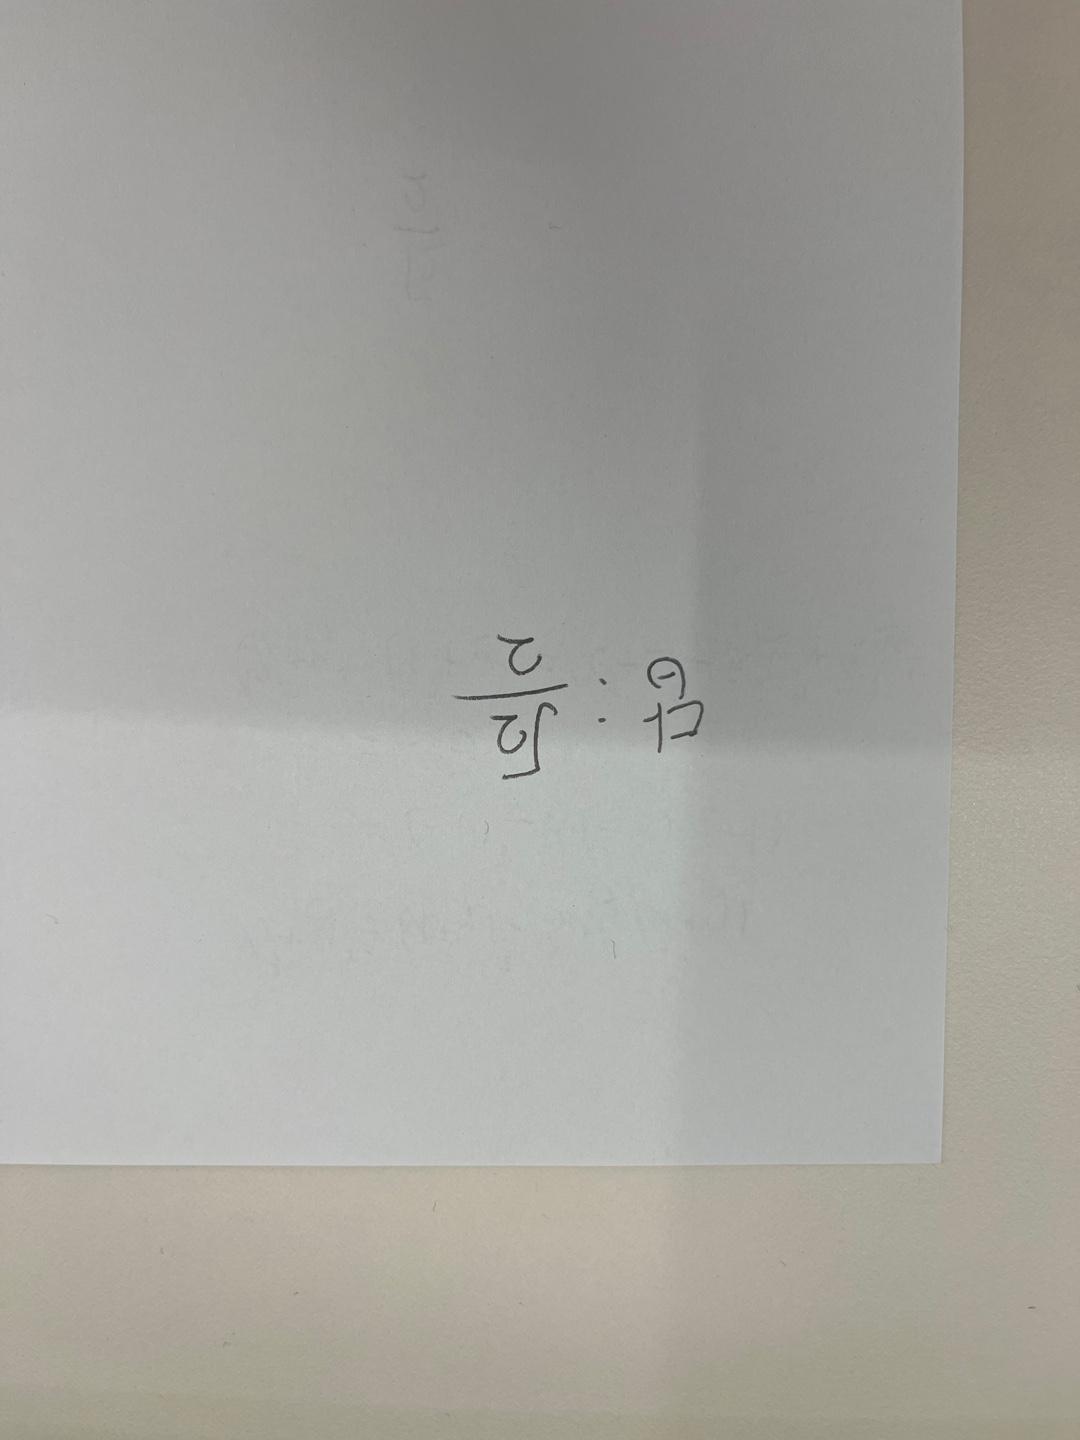 답: √2/2